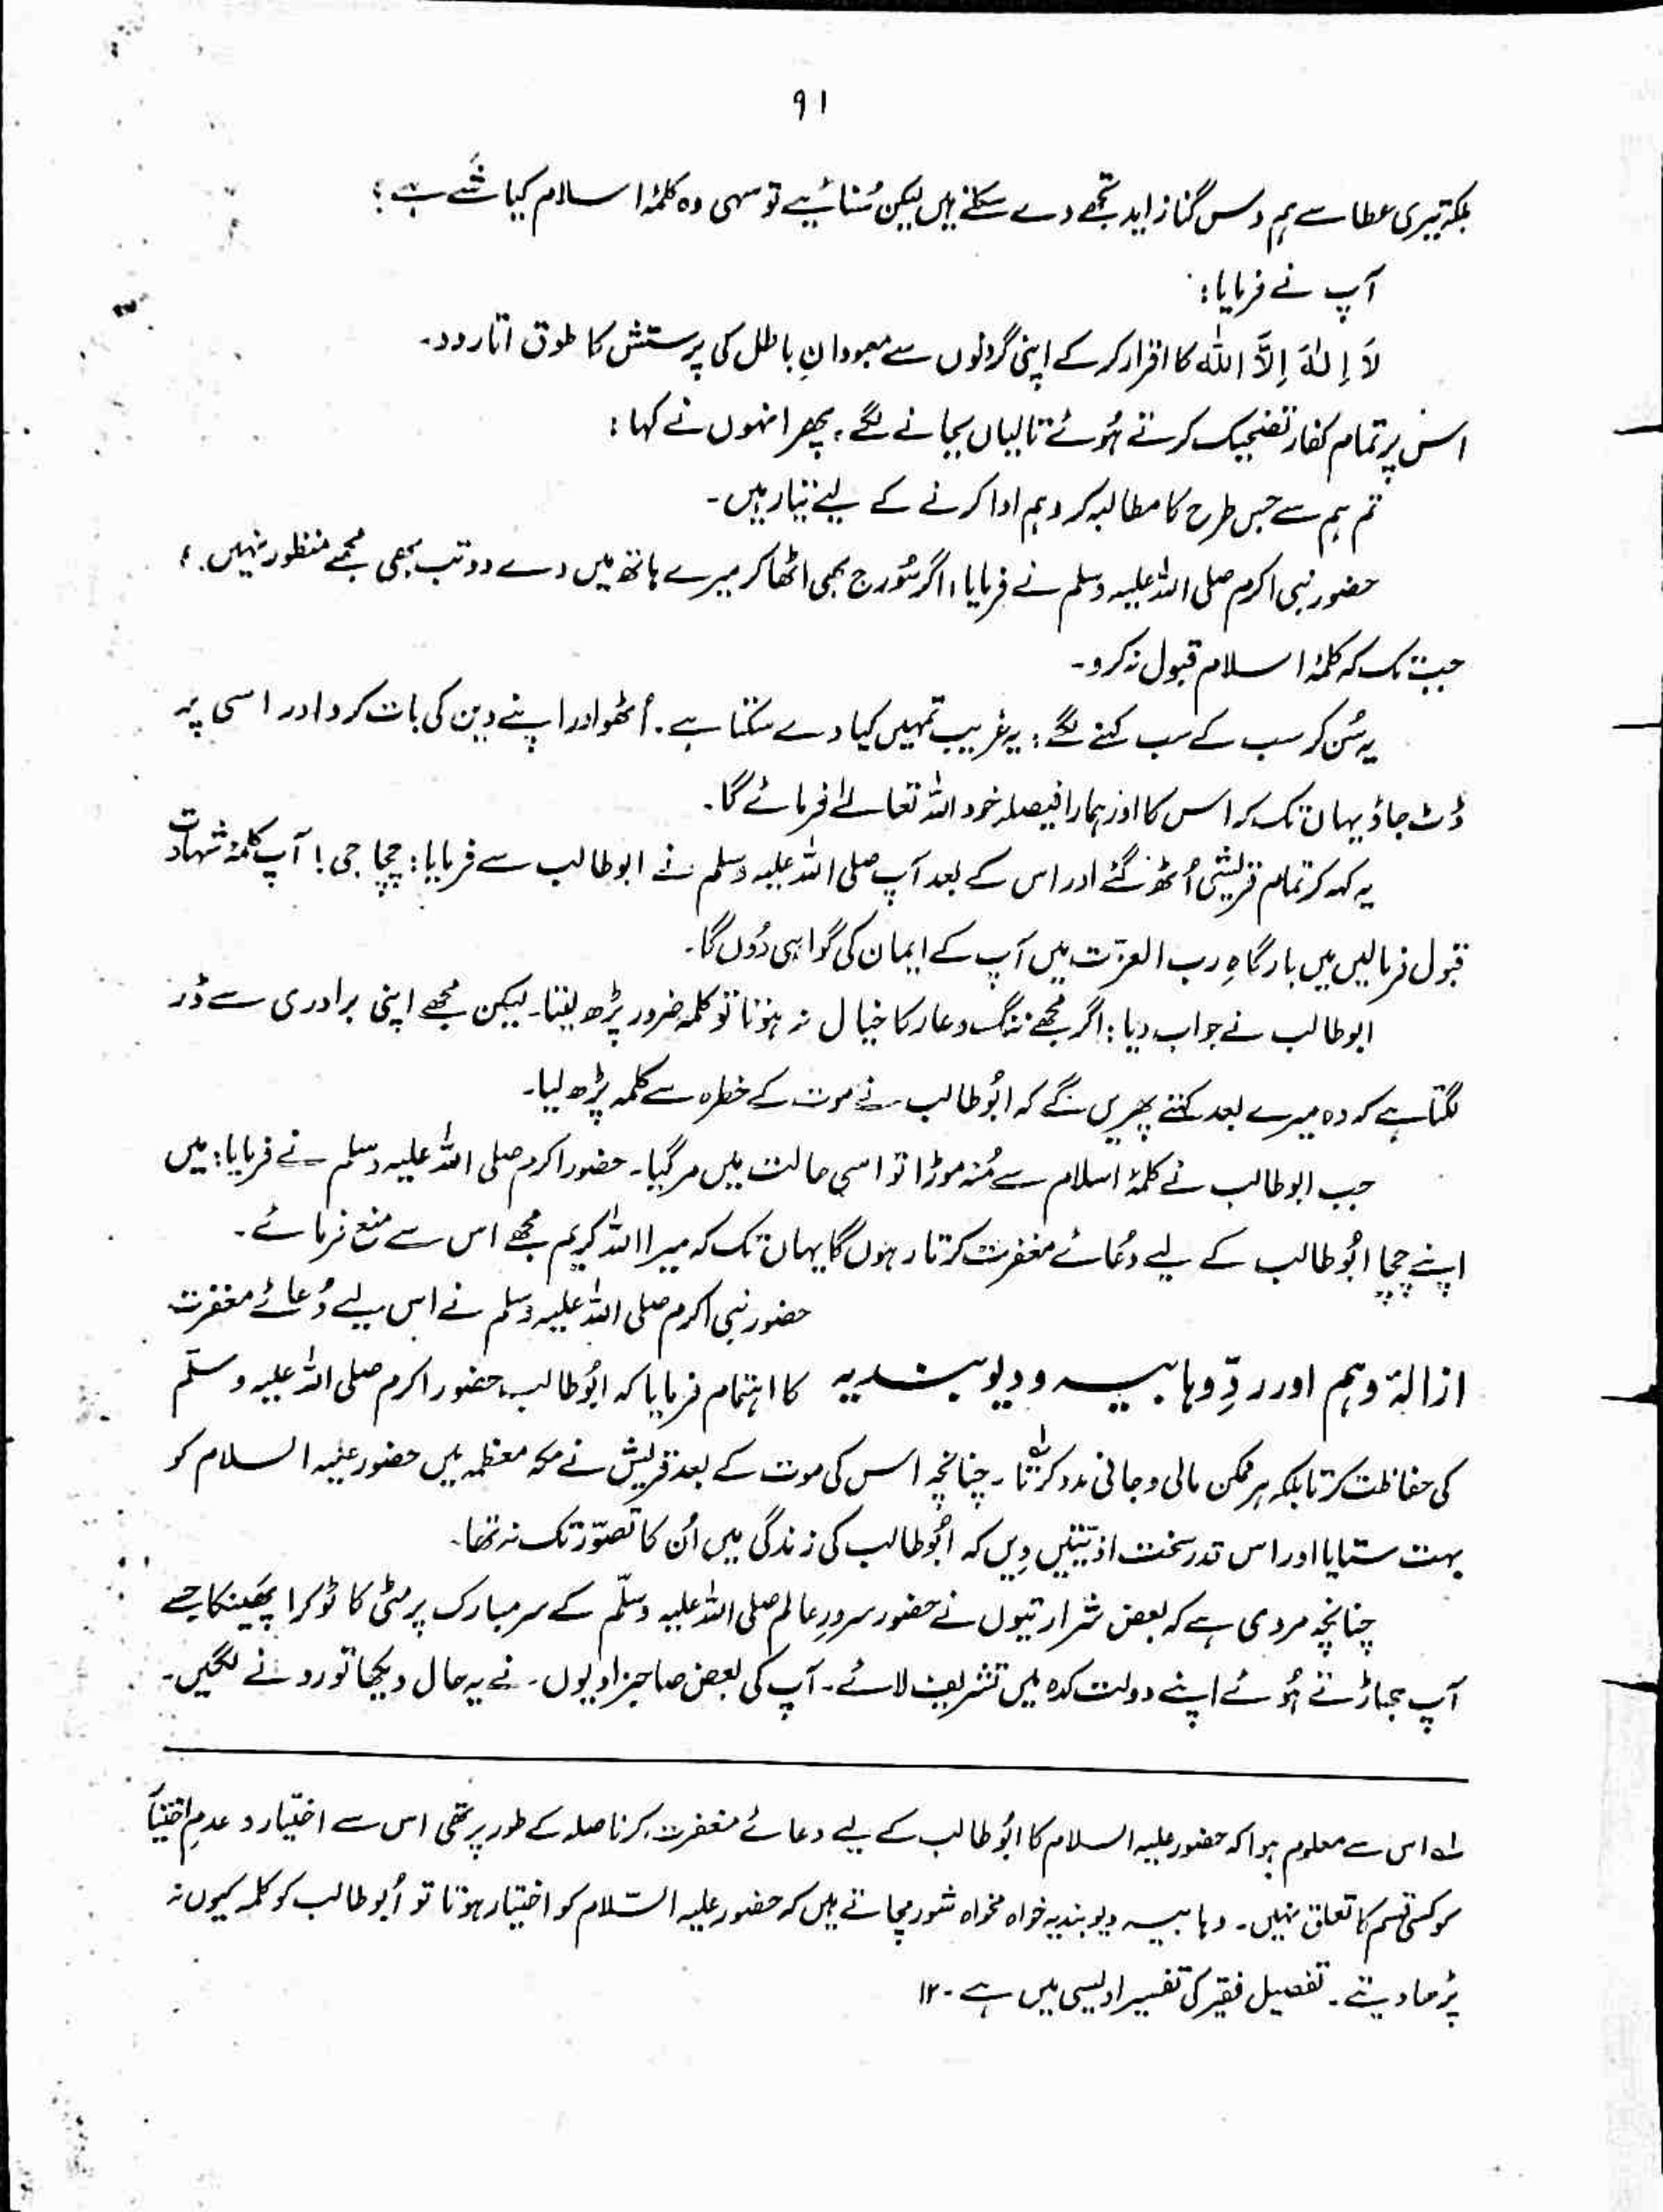 ۹۱
بلکہ تیری عطا سے ہم دس گنا زاید تجھے دے سکتے ہیں لیکن سُنائیے تو سہی وہ کلمۂ اسلام کیا شَے ہے ؟
آپ نے فرمایا :
لَا اِلٰہَ اِلَّا اللّٰہ کا اقرار کر کے اپنی گردنوں سے معبودانِ باطل کی پرستش کا طوق اتار دو۔
اس پر تمام کفار تضحیک کرتے ہُوئے تالیاں بجانے لگے ، پھر انہوں نے کہا :
تم ہم سے جس طرح کا مطالبہ کرو ہم ادا کرنے کے لیے تیار ہیں ۔
حضور نبی اکرم صلی اللہ علیہ وسلم نے فرمایا ، اگر سُورج بھی اٹھا کر میرے ہاتھ میں دے دو تب بھی مجھے منظور نہیں ،
جب تک کہ کلمۂ اسلام قبول نہ کرو ۔
یہ سُن کر سب کے سب کہنے لگے : یہ غریب تمہیں کیا دے سکتا ہے ۔ اُٹھو اور اپنے دین کی بات کرو اور اسی پہ
ڈٹ جاؤ یہاں تک کہ اس کا اور ہمارا فیصلہ خود اللہ تعالےٰ فرمائے گا۔
یہ کہہ کر تمام قریشی اُٹھ گئے اور اس کے بعد آپ صلی اللہ علیہ وسلم نے ابو طالب سے فرمایا : چچا جی ! آپ کلمۂ شہادت
قبول فرمالیں میں بارگاہِ رب العزّت میں آپ کے ایمان کی گواہی دُوں گا۔
ابو طالب نے جواب دیا : اگر مجھے ننگ و عار کا خیال نہ ہوتا تو کلمہ ضرور پڑھ لیتا۔ لیکن مجھے اپنی برادری سے ڈر
لگتا ہے کہ وہ میرے بعد کہتے پھریں گے کہ ابُو طالب نے موت کے خطرہ سے کلمہ پڑھ لیا۔
جب ابو طالب نے کلمۂ اسلام سے مُنہ موڑا تو اسی حالت میں مر گیا۔ حضور اکرم صلی اللہ علیہ وسلم نے فرمایا : میں
اپنے چچا ابُو طالب کے لیے دُعائے مغفرت کرتا رہوں گا یہاں تک کہ میرا اللہ کریم مجھے اس سے منع فرمائے ۔
حضور نبی اکرم صلی اللہ علیہ وسلم نے اس لیے دُعائے مغفرت
ازالۂ وہم اور ردِّ وہابیہ و دیوبندیہ کا اہتمام فرمایا کہ ابُو طالب حضور اکرم صلی اللہ علیہ وسلّم
کی حفاظت کرتا بلکہ ہر ممکن مالی و جانی مدد کرتا لہ ۔ چنانچہ اس کی موت کے بعد قریش نے مکہ معظمہ میں حضور علیہ السلام کو
بہت ستایا اور اس قدر سخت اذیّتیں دِیں کہ ابُو طالب کی زندگی میں اُن کا تصوّر تک نہ تھا۔
چنانچہ مروی ہے کہ بعض شرارتیوں نے حضور سرورِ عالم صلی اللہ علیہ وسلّم کے سر مبارک پر مٹی کا ٹوکرا پھینکا جسے
آپ جھاڑتے ہُوئے اپنے دولت کدہ میں تشریف لائے ۔ آپ کی بعض صاحبزادیوں نے یہ حال دیکھا تو رونے لگیں ۔
لہ اس سے معلوم ہوا کہ حضور علیہ السلام کا ابُو طالب کے لیے دعائے مغفرت کرنا صلہ کے طور پر تھی اس سے اختیار و عدمِ اختیار
کو کسی قسم کا تعلق نہیں ۔ وہابیہ دیوبندیہ خواہ مخواہ شور مچاتے ہیں کہ حضور علیہ السّلام کو اختیار ہوتا تو ابُو طالب کو کلمہ کیوں نہ
پڑھا دیتے ۔ تفصیل فقیر کی تفسیر اویسی میں ہے ۔ ۱۲